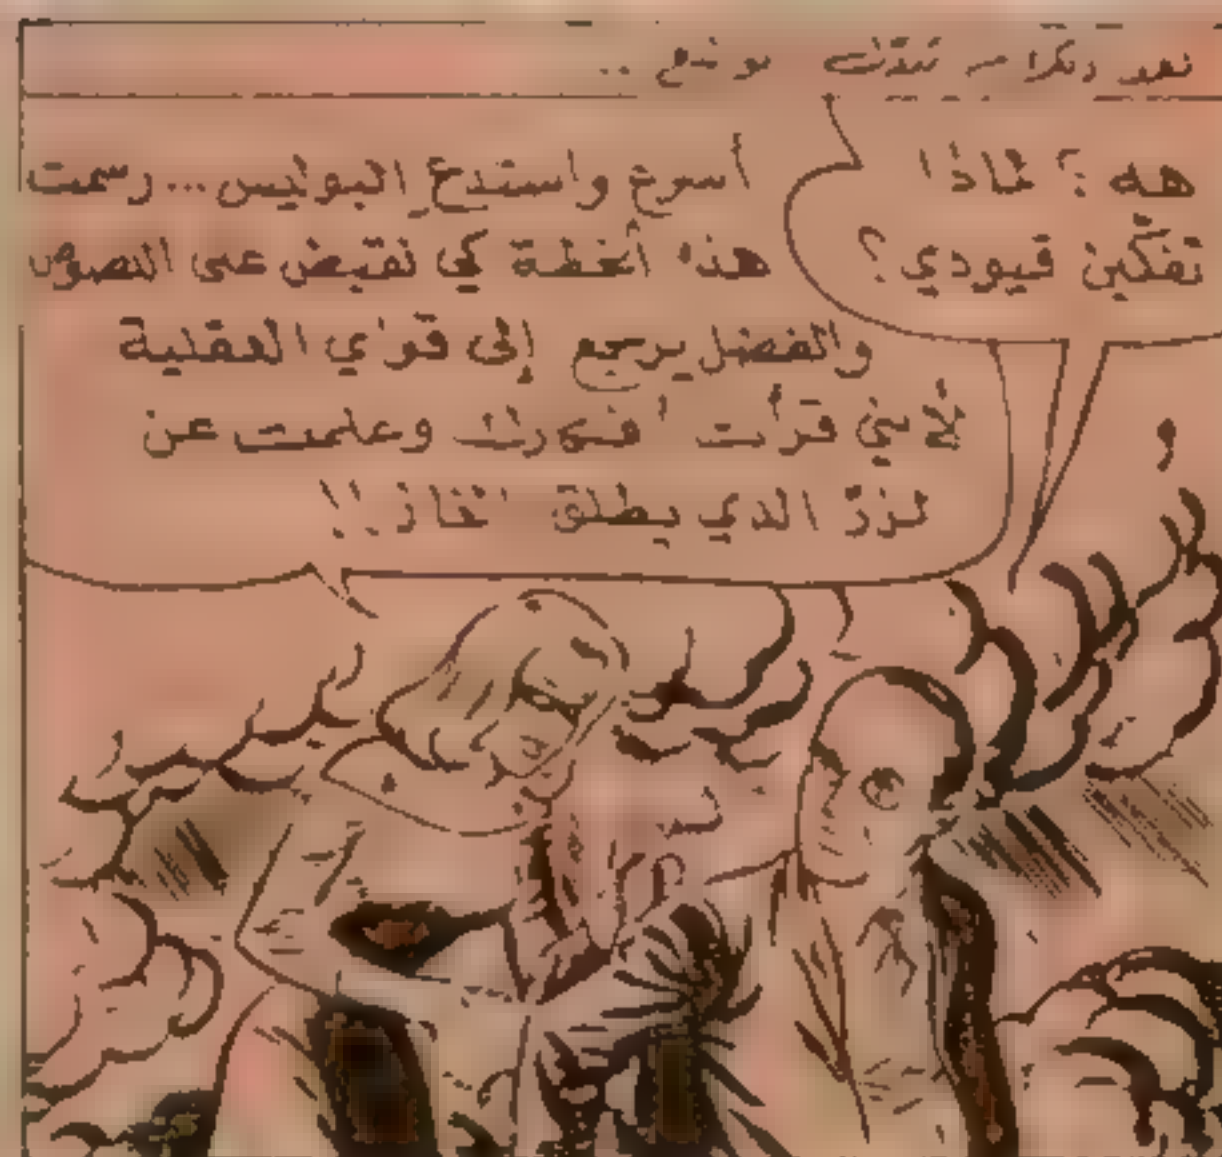 بعد تبدّل
هه؟ لماذا
تفكّين قيودي؟
أسرع واستدع البوليس... رسمت
هذه الخطة كي نقبض على اللصوص
والفضل يرجع إلى قواي العقلية
لأنني قرأت أفكارك وعلمت عن
الزرّ الذي يطلق الغاز!!